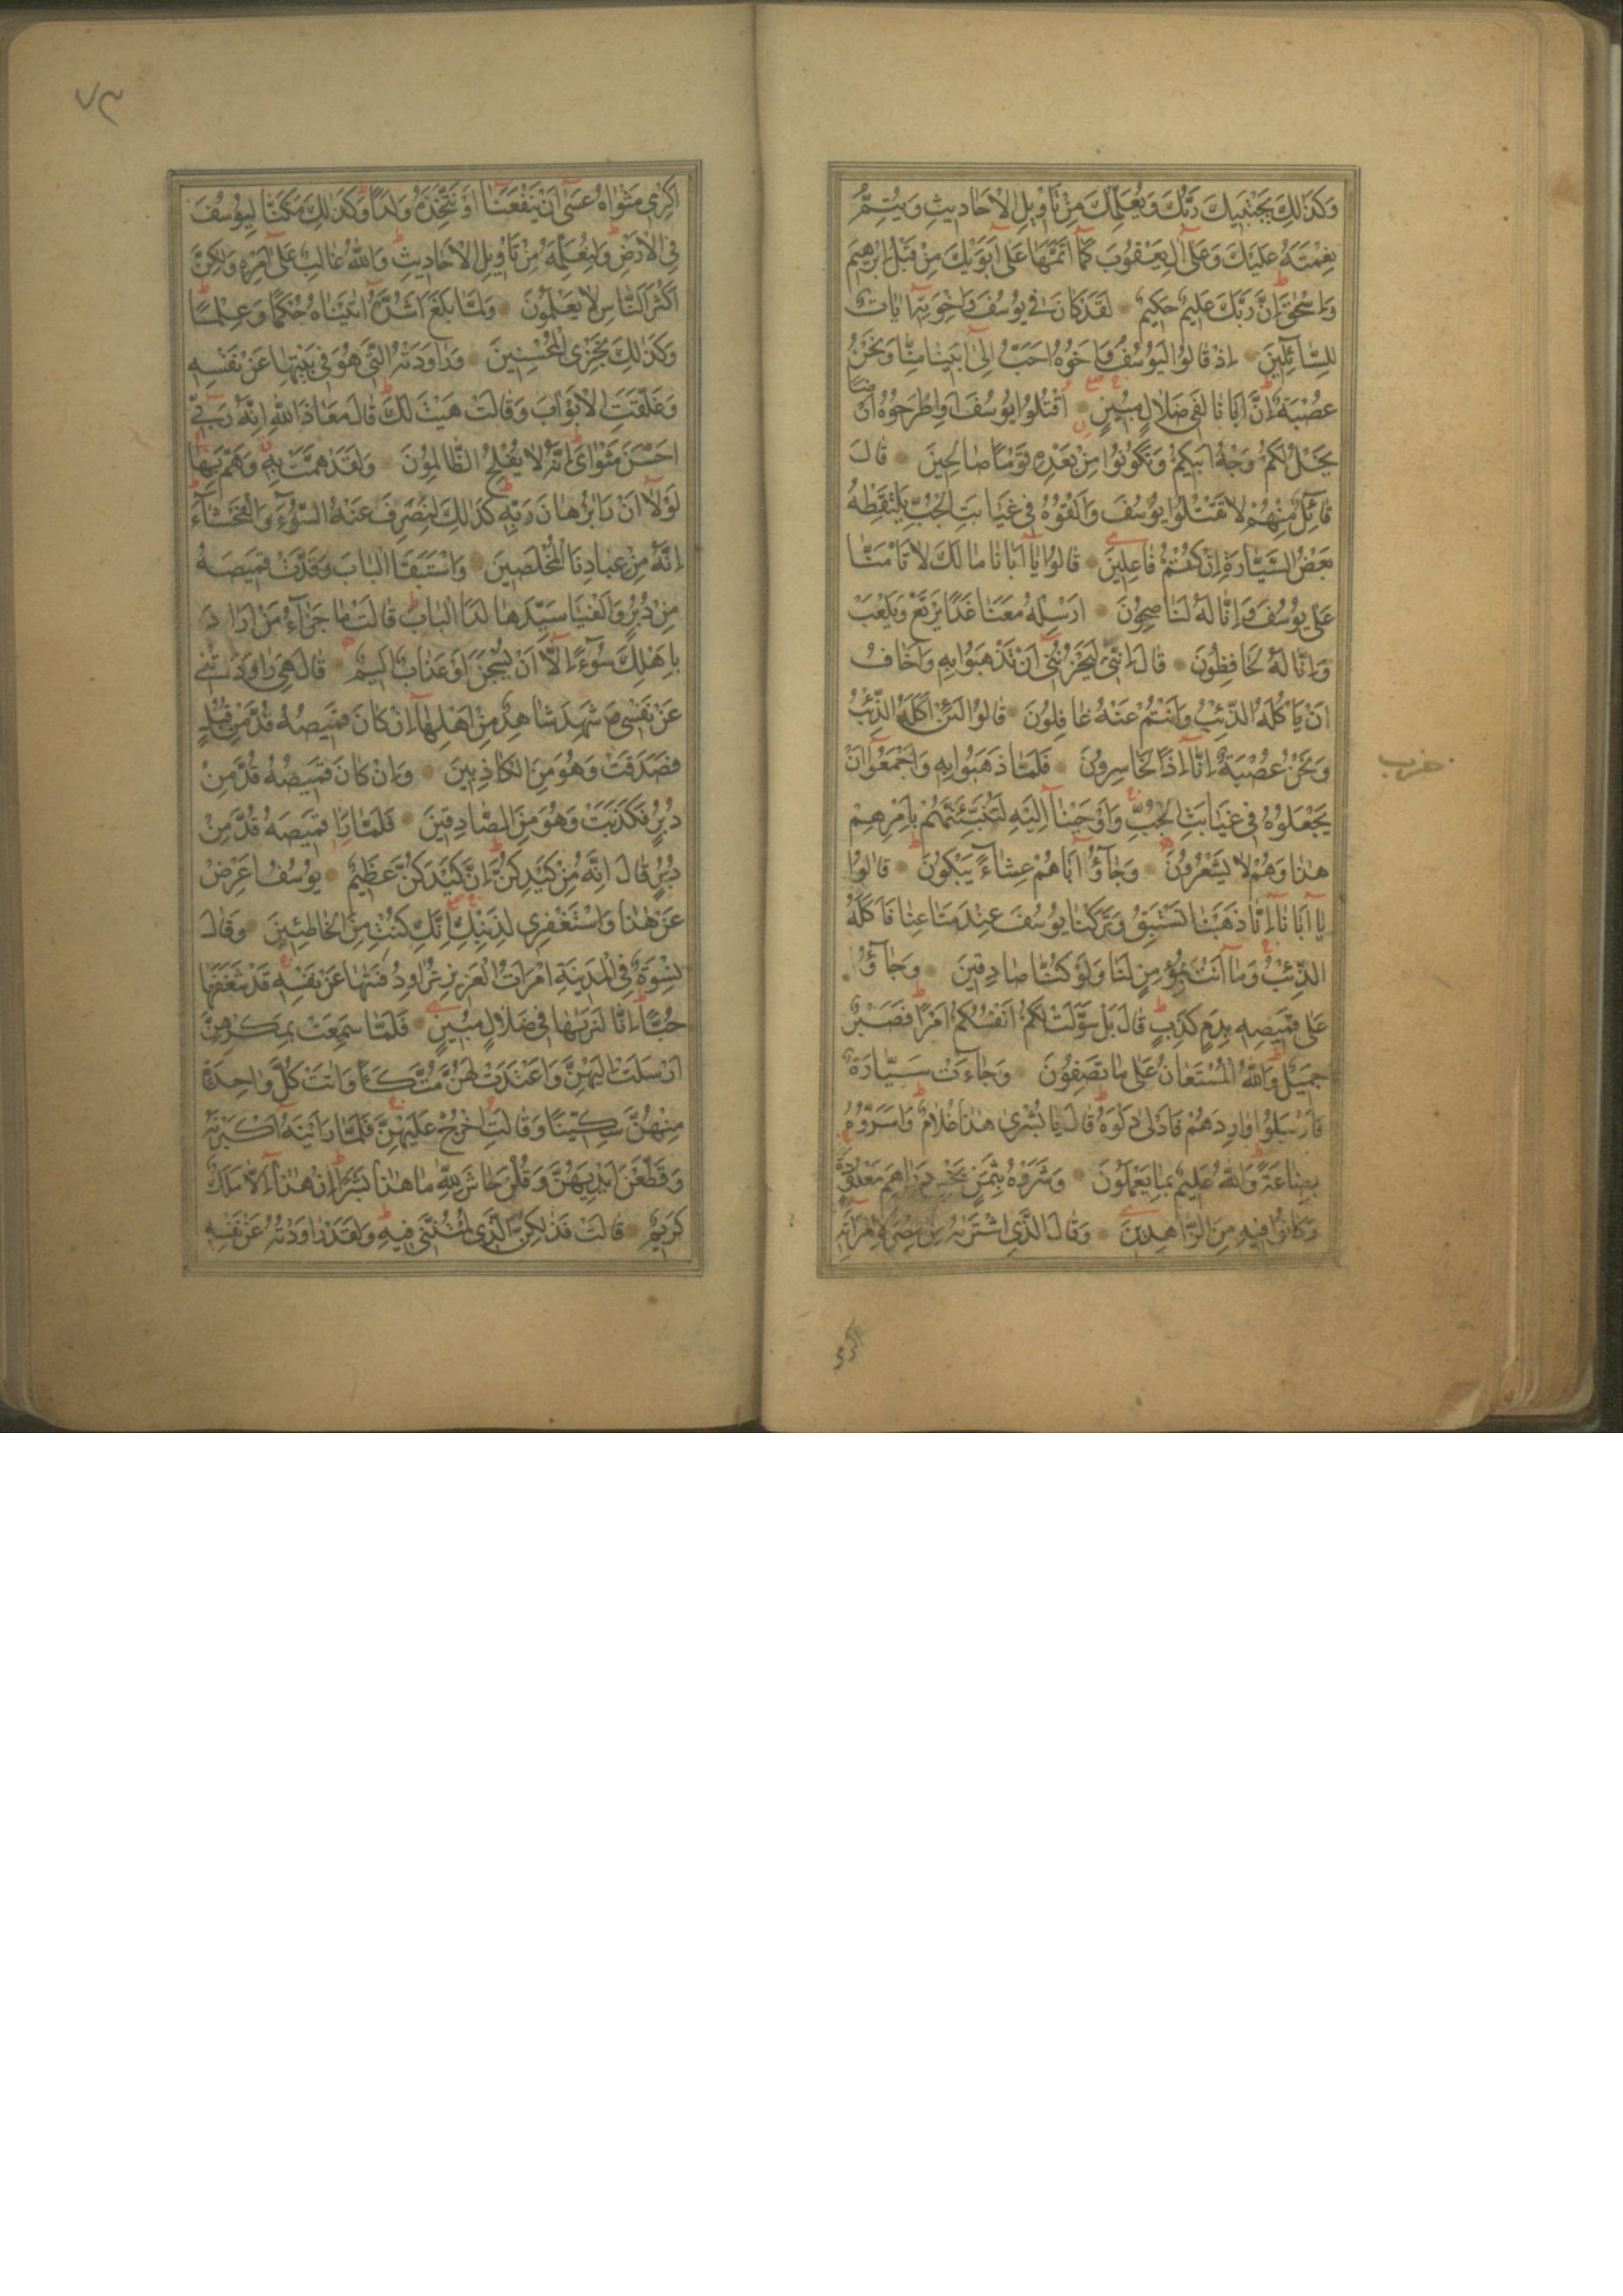 وَكَذٰلِكَ يَجْتَبِيكَ رَبُّكَ وَيُعَلِّمُكَ مِنْ تَأْوِيلِ الْاَحَادِيثِ وَيُتِمُّ
نِعْمَتَهُ عَلَيْكَ وَعَلٰٓى اٰلِ يَعْقُوبَ كَمَٓا اَتَمَّهَا عَلٰٓى اَبَوَيْكَ مِنْ قَبْلُ اِبْرٰهِيمَ
وَاِسْحٰقَ اِنَّ رَبَّكَ عَلِيمٌ حَكِيمٌ لَقَدْ كَانَ فِي يُوسُفَ وَاِخْوَتِهٓ اٰيَاتٌ
لِلسَّٓائِلِينَ اِذْ قَالُوا لَيُوسُفُ وَاَخُوهُ اَحَبُّ اِلٰٓى اَبِينَا مِنَّا وَنَحْنُ
عُصْبَةٌ اِنَّ اَبَانَا لَفِي ضَلَالٍ مُبِينٍ اُقْتُلُوا يُوسُفَ اَوِ اطْرَحُوهُ اَرْضًا
يَخْلُ لَكُمْ وَجْهُ اَبِيكُمْ وَتَكُونُوا مِنْ بَعْدِهِ قَوْمًا صَالِحِينَ قَالَ
قَٓائِلٌ مِنْهُمْ لَا تَقْتُلُوا يُوسُفَ وَاَلْقُوهُ فِي غَيَابَتِ الْجُبِّ يَلْتَقِطْهُ
بَعْضُ السَّيَّارَةِ اِنْ كُنْتُمْ فَاعِلِينَ قَالُوا يَٓا اَبَانَا مَا لَكَ لَا تَأْمَنَّا
عَلٰى يُوسُفَ وَاِنَّا لَهُ لَنَاصِحُونَ اَرْسِلْهُ مَعَنَا غَدًا يَرْتَعْ وَيَلْعَبْ
وَاِنَّا لَهُ لَحَافِظُونَ قَالَ اِنِّي لَيَحْزُنُنِٓي اَنْ تَذْهَبُوا بِهِ وَاَخَافُ
اَنْ يَأْكُلَهُ الذِّئْبُ وَاَنْتُمْ عَنْهُ غَافِلُونَ قَالُوا لَئِنْ اَكَلَهُ الذِّئْبُ
وَنَحْنُ عُصْبَةٌ اِنَّٓا اِذًا لَخَاسِرُونَ فَلَمَّا ذَهَبُوا بِهِ وَاَجْمَعُٓوا اَنْ
يَجْعَلُوهُ فِي غَيَابَتِ الْجُبِّ وَاَوْحَيْنَٓا اِلَيْهِ لَتُنَبِّئَنَّهُمْ بِاَمْرِهِمْ
هٰذَا وَهُمْ لَا يَشْعُرُونَ وَجَٓاؤُٓا اَبَاهُمْ عِشَٓاءً يَبْكُونَ قَالُوا
يَٓا اَبَانَٓا اِنَّا ذَهَبْنَا نَسْتَبِقُ وَتَرَكْنَا يُوسُفَ عِنْدَ مَتَاعِنَا فَاَكَلَهُ
الذِّئْبُ وَمَٓا اَنْتَ بِمُؤْمِنٍ لَنَا وَلَوْ كُنَّا صَادِقِينَ وَجَٓاؤُ
عَلٰى قَمِيصِهِ بِدَمٍ كَذِبٍ قَالَ بَلْ سَوَّلَتْ لَكُمْ اَنْفُسُكُمْ اَمْرًا فَصَبْرٌ
جَمِيلٌ وَاللّٰهُ الْمُسْتَعَانُ عَلٰى مَا تَصِفُونَ وَجَٓاءَتْ سَيَّارَةٌ
فَاَرْسَلُوا وَارِدَهُمْ فَاَدْلٰى دَلْوَهُ قَالَ يَا بُشْرٰى هٰذَا غُلَامٌ وَاَسَرُّوهُ
بِضَاعَةً وَاللّٰهُ عَلِيمٌ بِمَا يَعْمَلُونَ وَشَرَوْهُ بِثَمَنٍ بَخْسٍ دَرَاهِمَ مَعْدُودَةٍ
وَكَانُوا فِيهِ مِنَ الزَّاهِدِينَ وَقَالَ الَّذِي اشْتَرٰيهُ مِنْ مِصْرَ لِامْرَاَتِهِ
اكرمى
حزب
٧٣
اَكْرِمِي مَثْوٰاهُ عَسٰٓى اَنْ يَنْفَعَنَٓا اَوْ نَتَّخِذَهُ وَلَدًا وَكَذٰلِكَ مَكَّنَّا لِيُوسُفَ
فِي الْاَرْضِ وَلِنُعَلِّمَهُ مِنْ تَأْوِيلِ الْاَحَادِيثِ وَاللّٰهُ غَالِبٌ عَلٰٓى اَمْرِهِ وَلٰكِنَّ
اَكْثَرَ النَّاسِ لَا يَعْلَمُونَ وَلَمَّا بَلَغَ اَشُدَّهُٓ اٰتَيْنَاهُ حُكْمًا وَعِلْمًا
وَكَذٰلِكَ نَجْزِي الْمُحْسِنِينَ وَرَاوَدَتْهُ الَّتِي هُوَ فِي بَيْتِهَا عَنْ نَفْسِهِ
وَغَلَّقَتِ الْاَبْوَابَ وَقَالَتْ هَيْتَ لَكَ قَالَ مَعَاذَ اللّٰهِ اِنَّهُ رَبِّٓي
اَحْسَنَ مَثْوَايَ اِنَّهُ لَا يُفْلِحُ الظَّالِمُونَ وَلَقَدْ هَمَّتْ بِهِ وَهَمَّ بِهَا
لَوْلَٓا اَنْ رَاٰ بُرْهَانَ رَبِّهِ كَذٰلِكَ لِنَصْرِفَ عَنْهُ السُّٓوءَ وَالْفَحْشَٓاءَ
اِنَّهُ مِنْ عِبَادِنَا الْمُخْلَصِينَ وَاسْتَبَقَا الْبَابَ وَقَدَّتْ قَمِيصَهُ
مِنْ دُبُرٍ وَاَلْفَيَا سَيِّدَهَا لَدَا الْبَابِ قَالَتْ مَا جَزَٓاءُ مَنْ اَرَادَ
بِاَهْلِكَ سُٓوءًا اِلَّٓا اَنْ يُسْجَنَ اَوْ عَذَابٌ اَلِيمٌ قَالَ هِيَ رَاوَدَتْنِي
عَنْ نَفْسِي وَشَهِدَ شَاهِدٌ مِنْ اَهْلِهَٓا اِنْ كَانَ قَمِيصُهُ قُدَّ مِنْ قُبُلٍ
فَصَدَقَتْ وَهُوَ مِنَ الْكَاذِبِينَ وَاِنْ كَانَ قَمِيصُهُ قُدَّ مِنْ
دُبُرٍ فَكَذَبَتْ وَهُوَ مِنَ الصَّادِقِينَ فَلَمَّا رَاٰ قَمِيصَهُ قُدَّ مِنْ
دُبُرٍ قَالَ اِنَّهُ مِنْ كَيْدِكُنَّ اِنَّ كَيْدَكُنَّ عَظِيمٌ يُوسُفُ اَعْرِضْ
عَنْ هٰذَا وَاسْتَغْفِرِي لِذَنْبِكِ اِنَّكِ كُنْتِ مِنَ الْخَاطِئِينَ وَقَالَ
نِسْوَةٌ فِي الْمَدِينَةِ امْرَاَتُ الْعَزِيزِ تُرَاوِدُ فَتٰيهَا عَنْ نَفْسِهِ قَدْ شَغَفَهَا
حُبًّا اِنَّا لَنَرٰيهَا فِي ضَلَالٍ مُبِينٍ فَلَمَّا سَمِعَتْ بِمَكْرِهِنَّ
اَرْسَلَتْ اِلَيْهِنَّ وَاَعْتَدَتْ لَهُنَّ مُتَّكَـًٔا وَاٰتَتْ كُلَّ وَاحِدَةٍ
مِنْهُنَّ سِكِّينًا وَقَالَتِ اخْرُجْ عَلَيْهِنَّ فَلَمَّا رَاَيْنَهُٓ اَكْبَرْنَهُ
وَقَطَّعْنَ اَيْدِيَهُنَّ وَقُلْنَ حَاشَ لِلّٰهِ مَا هٰذَا بَشَرًا اِنْ هٰذَٓا اِلَّا مَلَكٌ
كَرِيمٌ قَالَتْ فَذٰلِكُنَّ الَّذِي لُمْتُنَّنِي فِيهِ وَلَقَدْ رَاوَدْتُهُ عَنْ نَفْسِهِ